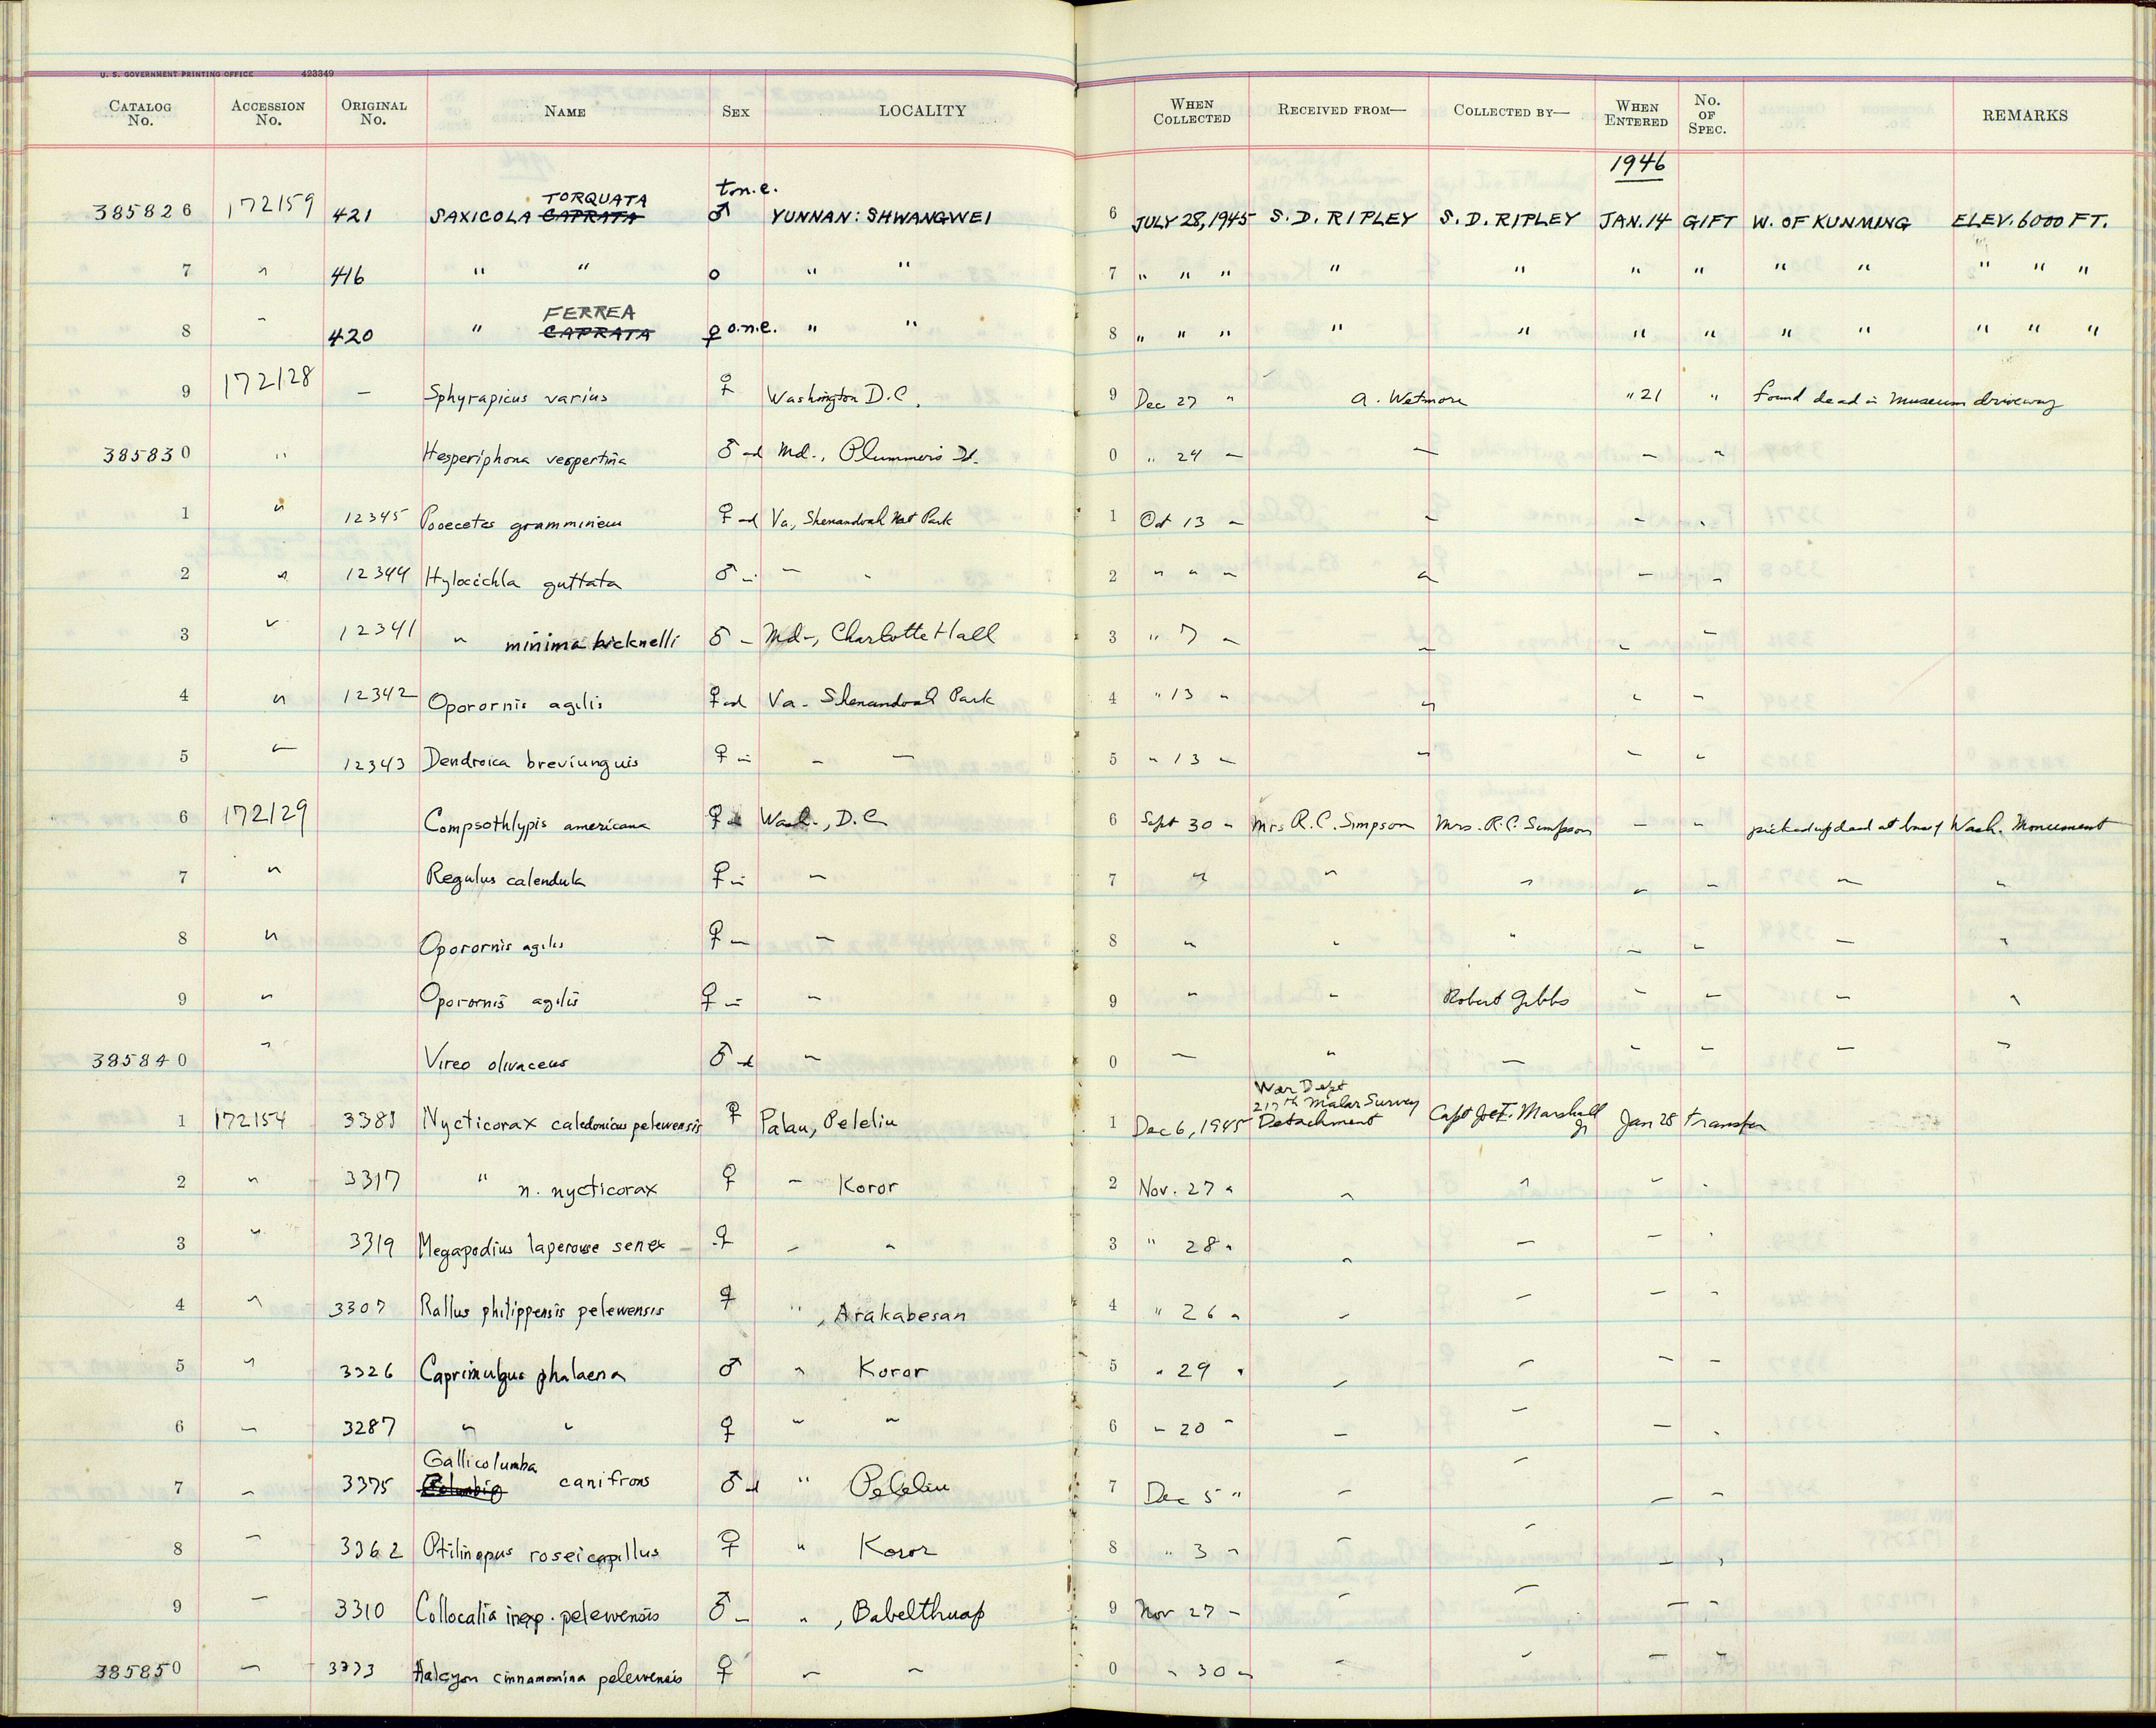 U. S. GOVERNMENT PRINTING OFFICE 423349
CATALOG No. ACCESSION No. ORIGINAL No. NAME SEX LOCALITY WHEN COLLECTED RECEIVED FROM— COLLECTED BY— WHEN ENTERED No. OF SPEC. REMARKS
1946
385826 172159 421 SAXICOLA CAPRATA TORQUATA ♂ t.n.e. YUNNAN: SHWANGWEI 6 JULY 28, 1945 S. D. RIPLEY S. D. RIPLEY JAN. 14 GIFT W. OF KUNMING ELEV. 6000 FT.
7 " 416 " " o " " 7 " " " " " " " " " " " "
8 " 420 " CAPRATA FERREA ♀ o.n.e. " " 8 " " " " " " " " " " " "
9 172128 — Sphyrapicus varius ♀ Washington D.C. 9 Dec 27 " A. Wetmore " 21 " found dead in Museum driveway
385830 " Hesperiphona vespertina ♂ ad Md., Plummers Id. 0 " 24 " " " "
1 " 12345 Pooecetes gramminieus ♀ ad Va, Shenandoah Nat Park 1 Oct 13 " " " "
2 " 12344 Hylocichla guttata ♂ " " " 2 " " " " " "
3 " 12341 " minima bicknelli ♂ " Md., Charlotte Hall 3 " 7 " " " "
4 " 12342 Oporornis agilis ♀ ad Va. Shenandoah Park 4 " 13 " " " "
5 " 12343 Dendroica breviunguis ♀ " " " 5 " 13 " " " "
6 172129 Compsothlypis americana ♀ Wash., D.C. 6 Sept 30 " Mrs R. C. Simpson Mrs. R. C. Simpson " " picked up dead at base of Wash. Monument
7 " Regulus calendula ♀ " " 7 " " " " " " "
8 " Oporornis agilis ♀ " " 8 " " " " " " "
9 " Oporornis agilis ♀ " " 9 " " Robert Gibbs " " " "
385840 " Vireo olivaceus ♂ ad " 0 " " " " " " "
1 172154 3381 Nycticorax caledonicus pelewensis ♀ Palau, Peleliu 1 Dec 6, 1945 War Dept 217th Malar Survey Detachment Capt Joe T. Marshall Jr Jan 28 transfer
2 " 3317 " n. nycticorax ♀ " Koror 2 Nov. 27 " " " " "
3 " 3319 Megapodius laperouse senex ♀ " " 3 " 28 " " " " "
4 " 3307 Rallus philippensis pelewensis ♀ ", Arakabesan 4 " 26 " " " " "
5 " 3326 Caprimulgus phalaena ♂ " Koror 5 " 29 " " " " "
6 " 3287 " " ♀ " " 6 " 20 " " " " "
7 " 3375 Columbia Gallicolumba canifrons ♂ ad " Peleliu 7 Dec 5 " " " " "
8 " 3362 Ptilinopus roseicapillus ♀ " Koror 8 " 3 " " " " "
9 " 3310 Collocalia inexp. pelewensis ♂ " ", Babelthuap 9 Nov 27 " " " " "
385850 " 3333 Halcyon cinnamomina pelewensis ♀ " " 0 " 30 " " " " "